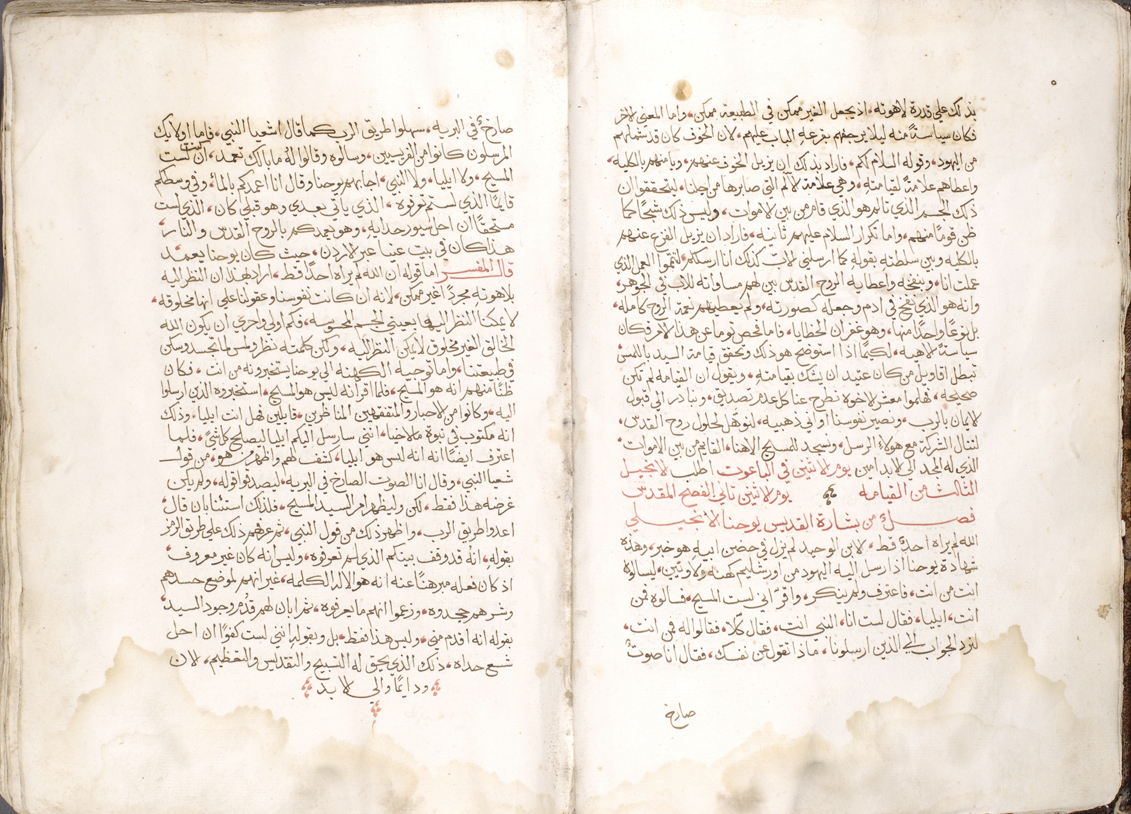 بذلك على قدرة لاهوته، اذ يجعل الغير ممكن في الطبيعة ممكن، واما المعنى لاخر
فكان سياسةً منه ليلا يرجفهم بقرعه الباب عليهم، لان الخوف كان قد شملهم
من اليهود، وقوله السلام لكم، فاراد بذلك ان يزيل الخوف عنهم، ويامنهم بالكليه
واعطاهم علامةً لقيامته، وهي علامة لالام التي صابرها من اجلنا، ليتحققوا ان
ذلك الجسم الذي تالم هو الذي قام من بين لاموات، وليس ذلك شبحًا كما
ظن قومًا منهم، واما تكرار السلام عليهم ثانيه، فاراد ان يزيل الفزع عنهم
بالكليه وبين سلطته بقوله كما ارسلني لاب كذلك انا ارسلكم، لتتموا العمل الذي
عملت انا، وبنفخه واعطايه الروح القدس بين لهم مساواته للاب في الجوهر،
وانه هو الذي نفخ في ادم وجعله كصورته، ولم يعطيهم نعمة الروح كامله،
بل نوعًا واحدًا منها، وهو غفران الخطايا، فاما فحص توما عن هذا لامر فكان
سياسةً لاهيه، لكيما اذا استوضح هو ذلك وتحقق قيامة السيد باللمس
تبطل اقاويل من كان عتيد ان يشك بقيامته، ويقول ان القيامه لم تكن
صحيحه، فهلموا معشر لاخوه نطرح عنا كل عدم تصديق، ونبادر الى قبول
لايمان بالرب، ونصير نفوسنا اواني ذهبيه، لنوهل لحلول روح القدس،
لننال الشركة مع هولاء الرسل، ونسجد للمسيح الاهنا، القايم من بين الاموات،
الذي له المجد الى لابد امين يوم لاثنين في الباعوث اطلب لانجيل
الثالث من القيامه يوم لاثنين ثاني الفصح المقدس
فصلٌ من بشارة القديس يوحنا لانجيلي
الله لم يراه احدً قط، لابن الوحيد لم يزل في حضن ابيه هو خبر، وهذه
شهادة يوحنا اذ ارسل اليه اليهود من اورشليم كهنه ولاويين، ليسالوه
انت من انت، فاعترف ولم ينكر، واقرّ اني لست المسيح، فسالوه فمن
انت، ايليا، فقال لست انا، النبي انت، فقال كلّا، فقالوا له فمن انت،
لنرد الجواب الى الذين ارسلونا، ماذا تقول عن نفسك، فقال انا صوت
صارخ
صارخٍ في البريه، سهلوا طريق الرب كما قال اشعيا النبي، فاما اولايك
المرسلون كانوا من الفريسيين، وسالوه وقالوا لهُ ما بالك تعمد، ان كنت لست
المسيح، ولا ايليا، ولا النبي، اجابهم يوحنا وقال انا اعمدكم بالماء، وفي وسطكم
قايمًا الذي لستم تعرفوه، الذي ياتي بعدي وهو قبلي كان، الذي لست
مستحقًا ان احل سيور حذايه، وهو يعمدكم بالروح القدس والنار،
هذا كان في بيت عنيا عبر لاردن، حيث كان يوحنا يعمد
قال المفسر اما قوله ان الله لم يراه احدًا قط، اراد بهذا ان النظر اليه
بلاهوته مجردًا غير ممكن، لانه ان كانت نفوسنا وعقولنا على انها مخلوقه،
لا يمكنا النظر اليها بعيني الجسم المحسوسه، فكم اولى واحرى ان يكون الله
الخالق الغير مخلوق لا يمكن النظر اليه، ولكن كلمته نظر ولمس لما تجسد وسكن
في طبيعتنا، واما توجيه الكهنه الى يوحنا يستخبرونه من انت، فكان
ظنًا منهم انه هو المسيح، فلما اقر انه ليس هو المسيح، استخبروه الذي ارسلوا
اليه، وكانوا من لاحبار والمتفقهين المناظرين، قايلين فهل انت ايليا، وذلك
انه مكتوب في نبوة ملاخيا، انني سارسل اليكم ايليا ليصلح كل شيٍ، فلما
اعترف ايضًا انه انه ليس هو ايليا، كشف لهم واظهر من هو، من قول
شعيا النبي، وقال انا الصوت الصارخ في البريه، ليصدقوا قوله، ولم يكن
غرضه هذا فقط، لكن وليظهر امر السيد المسيح، فلذلك استثنا بان قال،
اعدوا طريق الرب، واظهر ذلك من قول النبي، ثم عرفهم ذلك على طريق الرمز
بقوله، انه قد وقف بينكم الذي لم تعرفوه، وليس انه كان غير معروف،
اذ كان فعله مبرهنًا عنه انه هو الاله الكلمه، غير انهم لموضع حسدهم
وشرهم جحدوه، وزعموا انهم ما يعرفوه، ثم ابان لهم قدم وجود السيد،
بقوله انه اقدم مني، وليس هذا فقط، بل وبقوله انني لست كفوًا ان احل
شسع حذاه، ذلك الذي يحق له التسبيح والتقديس والتعظيم، لان
ودايمًا والى لابد